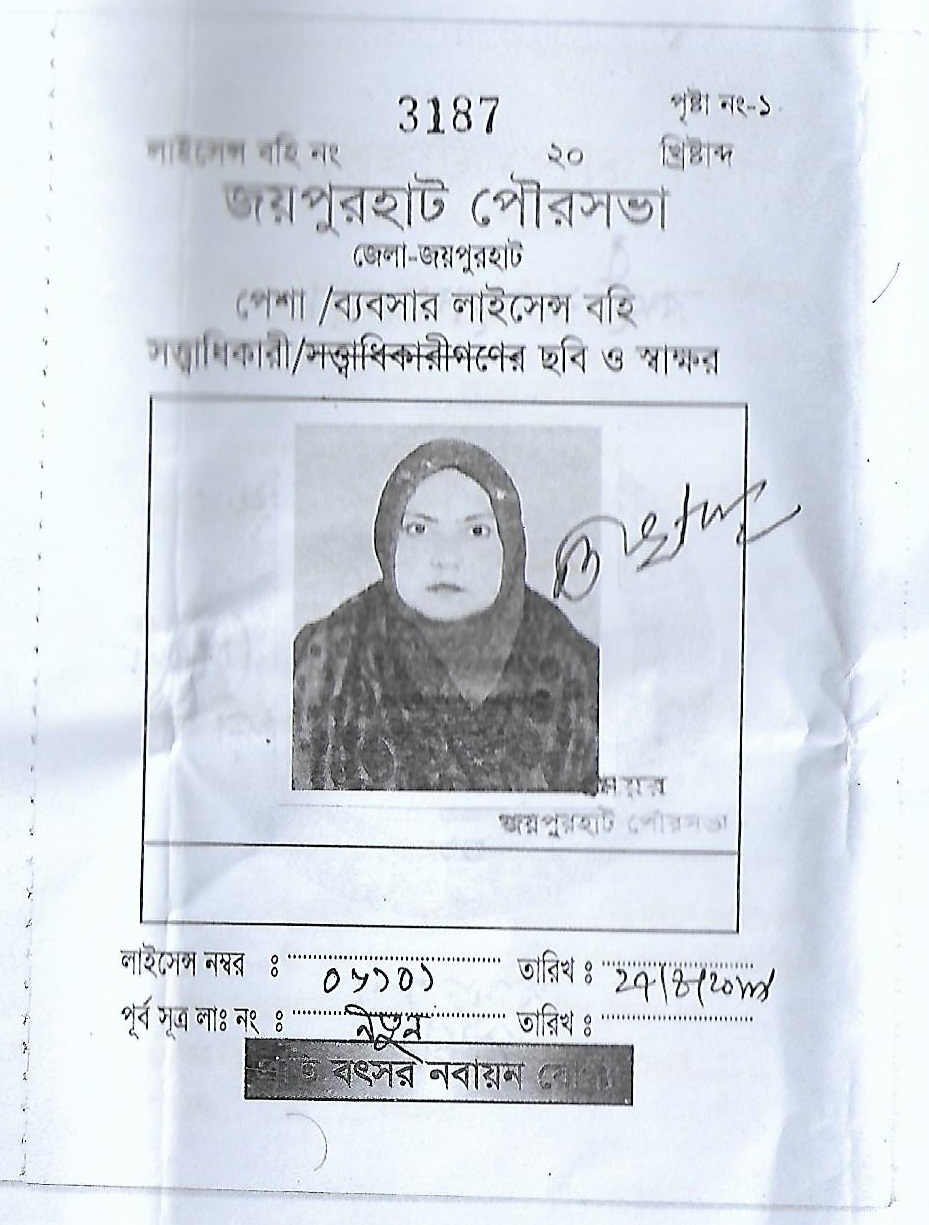 3187
পৃষ্টা নং-১
লাইসেন্স বহি নং ২০ খ্রিষ্টাব্দ
জয়পুরহাট পৌরসভা
জেলা-জয়পুরহাট
পেশা /ব্যবসার লাইসেন্স বহি
সত্ত্বাধিকারী/সত্ত্বাধিকারীগণের ছবি ও স্বাক্ষর
মেয়র
জয়পুরহাট পৌরসভা
লাইসেন্স নম্বর : তারিখ :
পূর্ব সূত্র লাঃ নং : নতুন তারিখ :
বৎসর নবায়ন